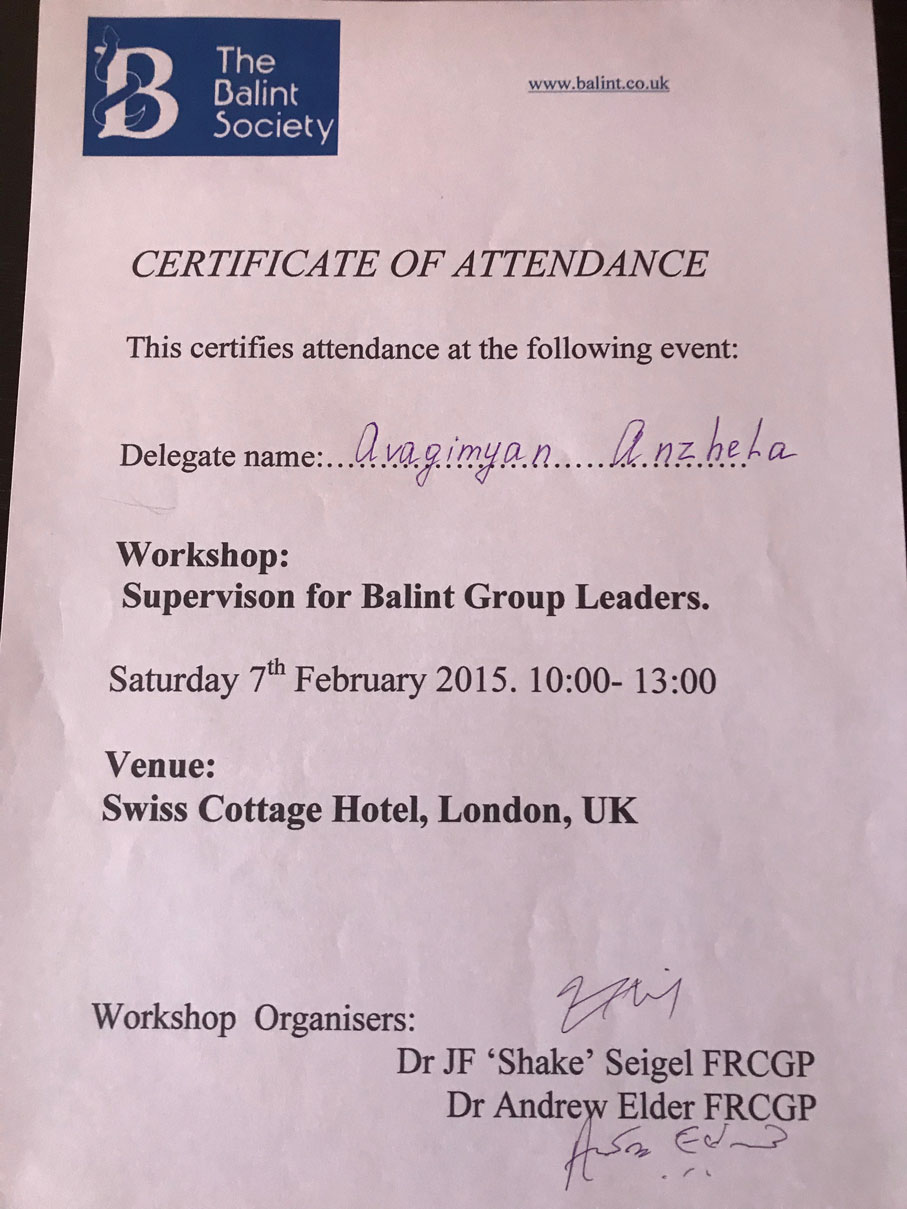 The
Balint
Society
www.balint.co.uk
CERTIFICATE OF ATTENDANCE
This certifies attendance at the following event:
Delegate name:....Avagimyan.....Anzhela
Workshop:
Supervison for Balint Group Leaders.
Saturday 7th February 2015. 10:00- 13:00
Venue:
Swiss Cottage Hotel, London, UK
Workshop Organisers:
Dr JF ‘Shake’ Seigel FRCGP
Dr Andrew Elder FRCGP